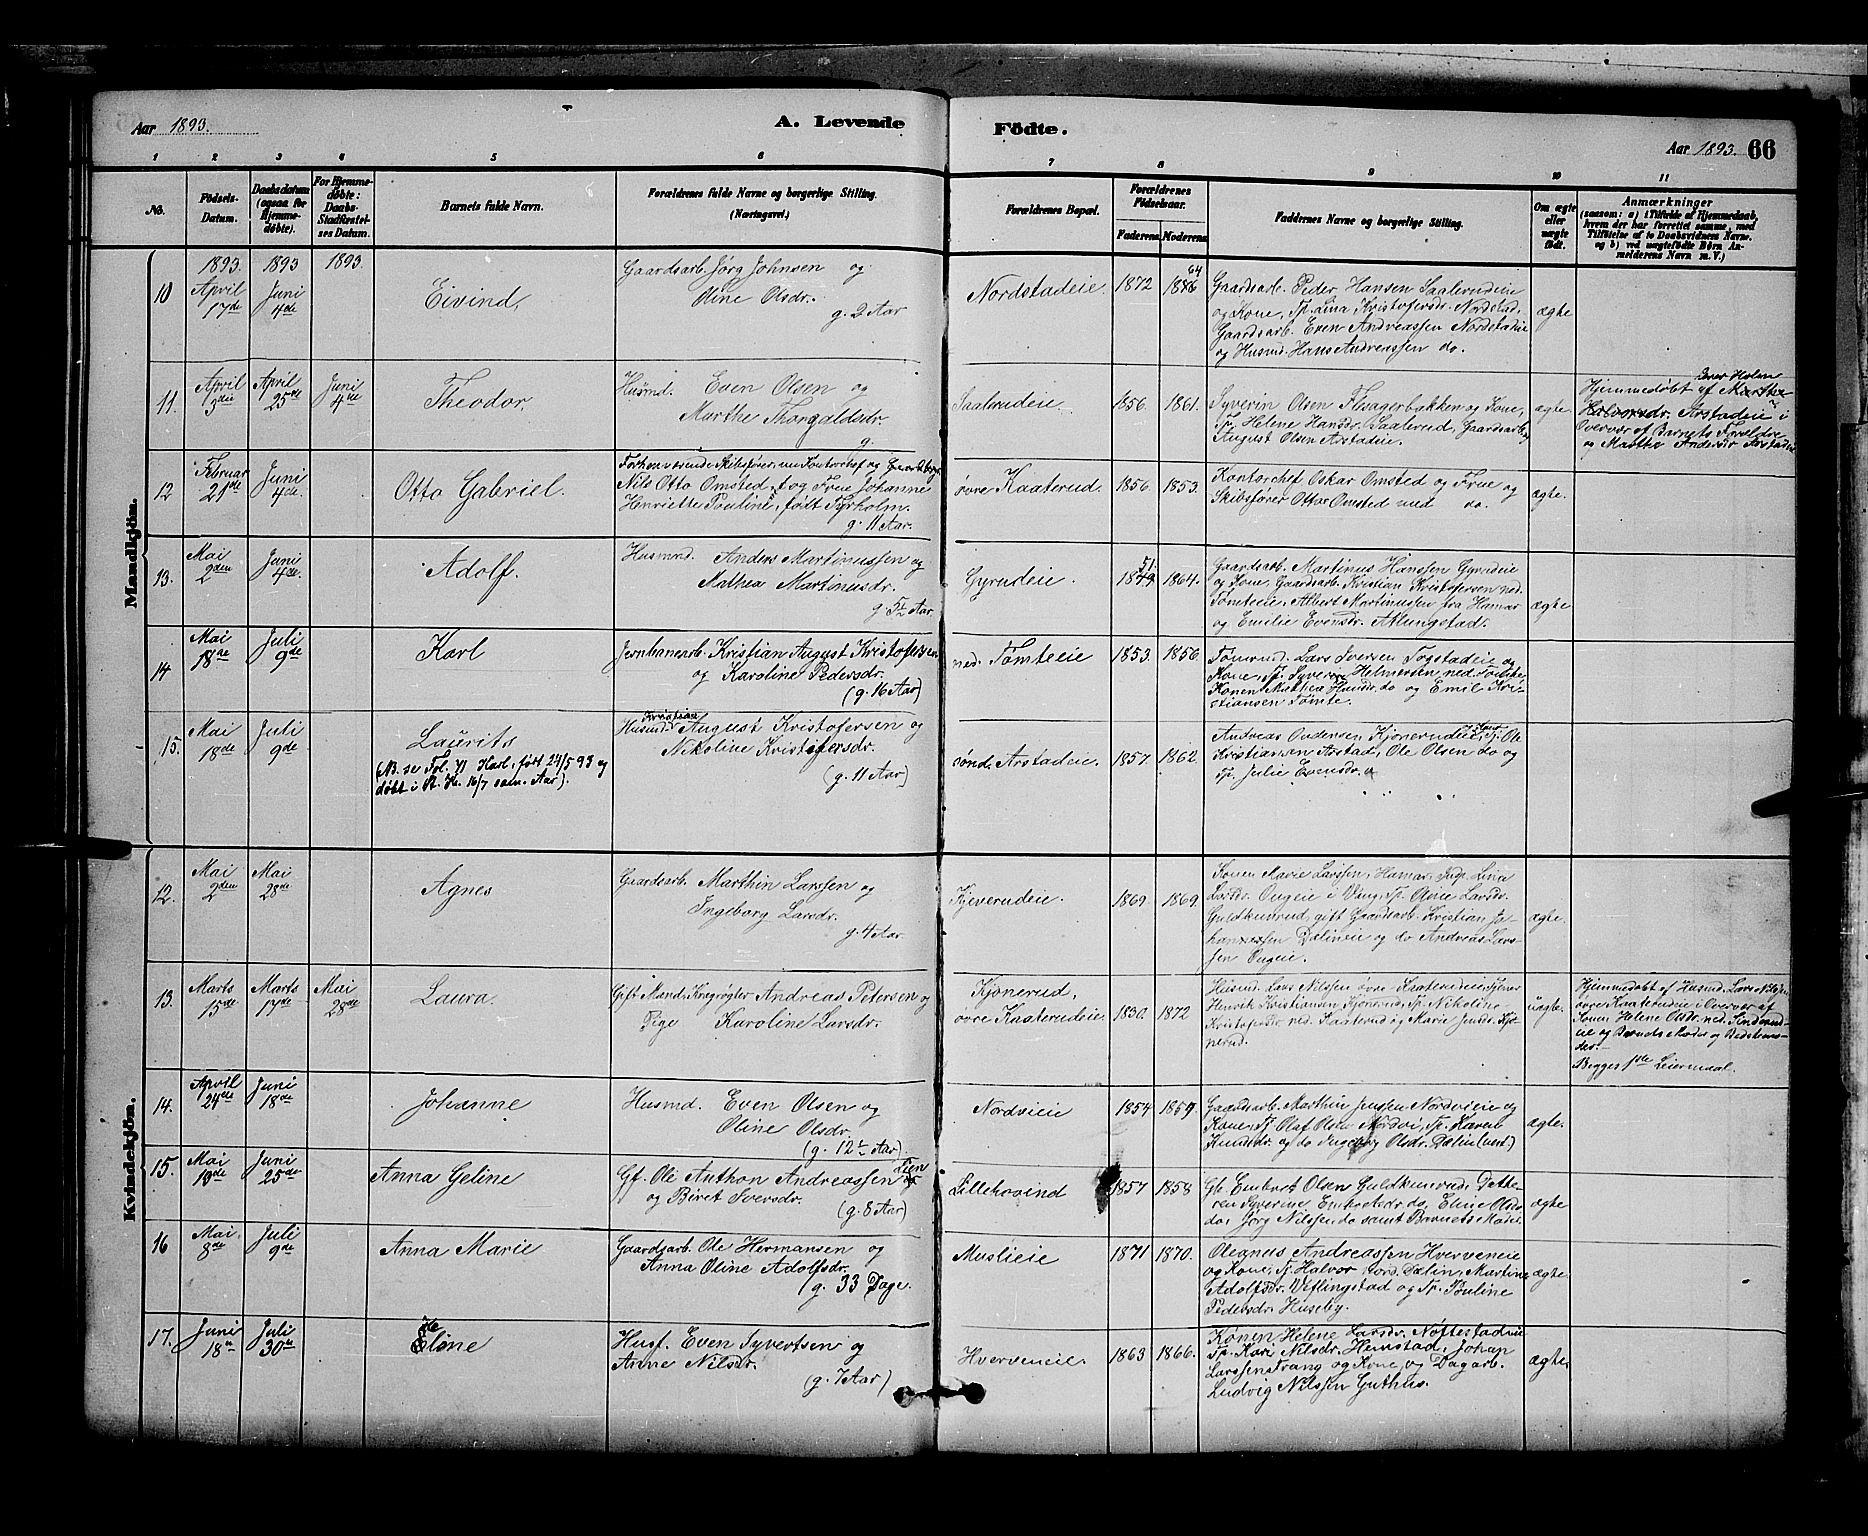 Aar 1893.
A. Levende Födte.
Aar 1893. 66
1 2 3 4 5 6 7 8 9 10 11
No.
Födsels-Datum.
Daabsdatum (ogsaa for Hjemme-döbte).
For Hjemme-döbte: Daabs-Stadfæstel-ses Datum.
Barnets fulde Navn.
Forældrenes fulde Navne og borgerlige Stilling. (Næringsvei.)
Forældrenes Bopæl.
Forældrenes Födselsaar.
Faderens. Moderens.
Faddernes Navne og borgerlige Stilling.
Om ægte eller uægte födt.
Anmærkninger
(saasom: a) i Tilfælde af Hjemmedaab, hvem der har forrettet samme, med Tilföielse af to Daabsvidners Navne. og b) ved uægtefödte Börn An-melderens Navn m. V.)
Mandkjön.
10 1893. April 17de 1893 Juni 4de 1893.
Eivind,
Gaardsarb. Jørg Johnsen og
Oline Olsdr.
g. 2 Aar
Nordstadeie. 1872 1886 64
Gaardsarb. Peder Hansen Saalerudeie
og Kone, Tp. Lina Kristofersdr. Nordstad,
Gaardsarb. Even Andreassen Nordstadeie
og Husmd. Hans Andreassen do.
ægte
11. April 3die April 25de Juni 4de
Theodor.
Husmd. Even Olsen og
Marthe Thorvaldsdr.
g.
Saalerudeie. 1856. 1861.
Syverin Olsen Flesagerbakken og Kone,
Tp. Helene Hansdr. Saalerud, Gaardsarb.
August Olsen Arstadeie.
ægte.
Hjemmedøbt af Marthe
Halvorsdr. Arstadeie i
Overvær af Barnets Forældre
og Marthe Andersdr Arstadeie
12 Februar 21de Juni 4de
Otto Gabriel.
Forhenværende Skibsfører, nu Kontorchef og Gaardbrug.
Nils Otto Omsted, og Frue Johanne
Henriette Pouline, født Fyrholm.
g. 11 Aar.
øvre Kaaterud. 1856. 1853.
Kontorchef Oskar Omsted og Frue og
Skibsfører Otto Omsted med do.
ægte.
13. Mai 2den Juni 4de
Adolf.
Husmnd. Anders Martinussen og
Mathea Martinusdr.
g. 5½ Aar
Gyrudeie. 1849 51. 1864.
Gaardsarb. Martinus Hanssen Gyrudeie
og Kone, Gaardsarb. Kristian Kristofersen ned.
Tømteeie, Albert Martinussen fra Hamar
og Emilie Evensdr. Atlungstad.
ægte
14 Mai 18de Juli 9de
Karl
Jernbanearb. Kristian August Kristofersen
og Karoline Pedersdr.
(g. 16 Aar)
ned. Tømteeie 1853. 1856.
Tømrmd. Lars Iversen Togstadeie og
Kone, Tp. Syver Helmersen ned. Tømte,
Konen Mathea Hansdr. do og Emil Kri-
stiansen Tømte.
15. Mai 18de Juli 9de
Laurits
(NB. se Fol. 71 Karl, født 24/5 93 og
døbt i St. K. 16/7 sam. Aar).
Husmd. Kristian August Kristofersen og
Nikoline Kristofersdr.
(g. 11 Aar)
sønd. Arstadeie. 1857. 1862.
Andreas Andersen Kjonerudeie, Tp. Ole
Kristiansen Arstad, Ole Olsen do og
Tp. Julie Evensdr.
Kvindekjön.
12. Mai 2den Mai 28de
Agnes
Gaardsarb. Marthin Larssen og
Ingeborg Larsdr.
g. 4 Aar
Kjeverudeie. 1869. 1869.
Konen Marie Larssen, Hamar, Tp. Lina
Larsdr. Ougeie i Vang, Tp. Oline Larsdr.
Guldkunrud, gift Gaardsarb. Kristian Jo-
hannessen Dalineie og do Andreas Lars-
sen Ougeie.
ægte.
13. Marts 15de Marts 17de Mai 28de
Laura.
Gift Mand, Andreas Petersen og
Pige Karoline Larsdr.
Kjonerud,
øvre Kaaterudeie. 1830. 1872
Husmd. Lars Nilssen øvre Kaaterudeie,
Henrik Kristiansen Kjonerud, Tp. Nikoline
Kristofersdr ned. Kaaterud og Marie Jensdr. Kjo-
nerud.
uægte.
Hjemmedøbt af Husmd. Lars Nilssen
øvre Kaaterudeie i Overvær af
Konen Helene Olsdr. ned. Sinderud-
eie og Barnets Moder og Bedstemo-
der.
Begges 1ste Leiermaal.
14. April 24de Juni 18de
Johanne
Husmd. Even Olsen og
Oline Olsdr.
(g. 12½ Aar)
Nordvieie 1854 1859.
Gaardsarb. Marthin Jenssen Nordvieie og
Kone, Tp. Olaf Olsen Nordvi, Tp. Karen
Knudsdr. og do Ingeborg Olsdr. Dalin (vest.)
ægte.
15. Mai 19de Juni 25de
Anna Geline
Gf. Ole Anthon Andreassen Lien
og Biret Iversdr.
(g. 8 Aar)
Lillehovind 1857 1858
Gb. Embret Olsen Guldkunrud, Datte-
ren Syverine Embretsdr do, Eline Olsdr
do, Jørg Nilssen do samt Barnets Moder
ægte
16 Mai 8de Juli 9de
Anna Marie
Gaardsarb. Ole Hermansen og
Anna Oline Adolfsdr.
(g. 33 Dage.
Muslieie 1871 1870.
Olegnus Andreassen Hverveneie
og Kone, Tp. Halvor nord. Dalin, Martine
Adolfsdr. Viflingstad og Tp. Pouline
Pedersdr. Huseby.
ægte.
17. Juni 18de Juli 30te
Eline
Husf. Even Syvertsen og
Anne Nilsdr.
(g. 7 Aar)
Hverveneie. 1863 1866.
Konen Helene Larsdr. Nøttestadeie
Tp. Kari Nilsdr. Hemstad, Johan
Larssen Frang og Kone, og Dagarb.
Ludvig Nilssen Guthus.
ægte.